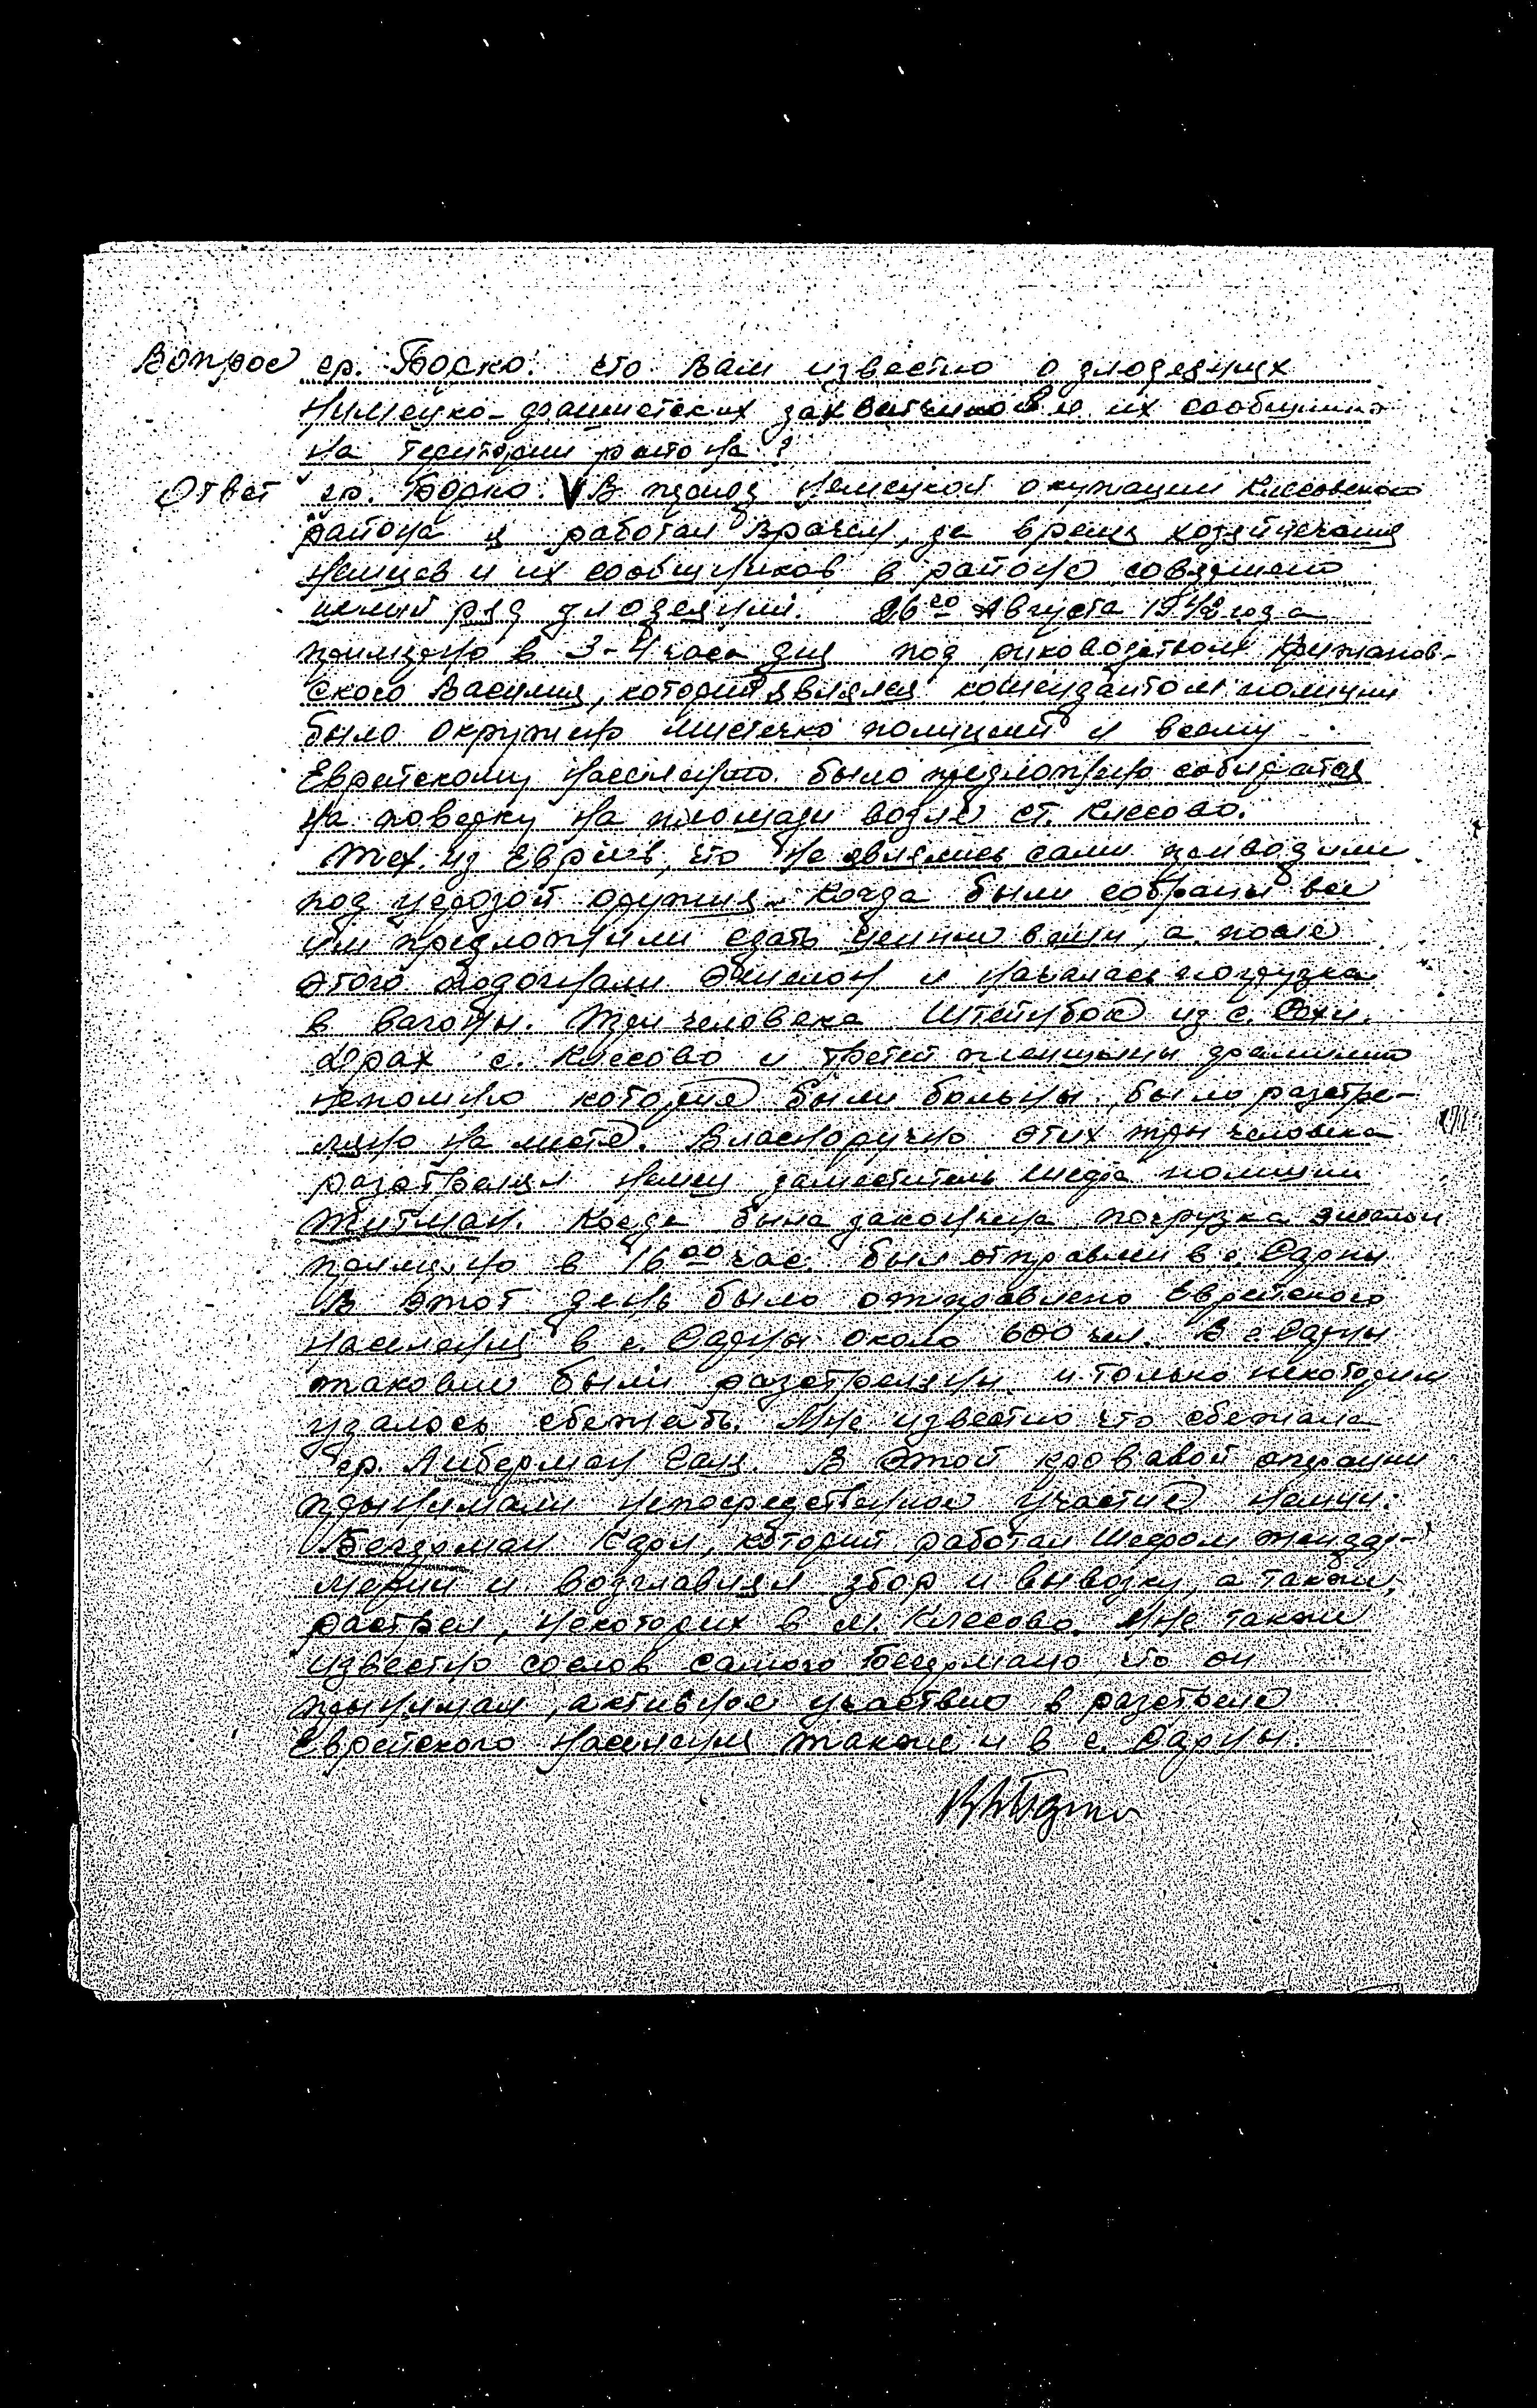 Вопрос гр. Борко: что Вам известно о злодеяниях
Немецко-фашистских захватчиков и их сообщников
на територии района?
Ответ гр. Борко: V В период немецкой окупации Клесовского
района я работал врачем, за время хозяйничания
немцев и их сообщников в районе совершено
целый ряд злодеяний. 26го Августа 1942 года
примерно в 3-4 часа дня под руководством Кружанов-
ского Василия, который являлся комендантом полиции
было окружено мистечко полицией и всему
Еврейскому населению было предложено собиратся
на поверку на площади возле ст. Клесово.
Тех из Евреев, что не являлись сами приводили
под угрозой оружия. Когда были собраны все
им предложили сдать ценные вещи, а после
этого подогнали эшелон и началась погрузка
в вагоны. Три человека Штейнбок из с.
с. Клесово и третей женщины фамилию
непомню которые были больны было разстре-
ляно на месте. Власноручно этих тры человека
разстрелял немец заместитель шефа полиции
Титман. Когда была закончена погрузка эшелон
примерно в 16 00 час. был отправлен в г. Сарны
В этот день было отправлено Еврейского
населения в г. Сарны около 600 чел. В г. Сарны
таковые были разстреляны и только некоторым
удалось сбежать. Мне известно что сбежала
гр. Либерман Галя. В этой кровавой операции
прынимали непосредственное участие немцы:
Бегерман Карл, который работал Шефом жандар-
мерии и возглавлял збор и вывозку, а также,
растрел, некоторих в м. Клесово. Мне также
известно сослов самого что он
прынимал, активное участвие в разстреле
Еврейского населения также и в г. Сарны.